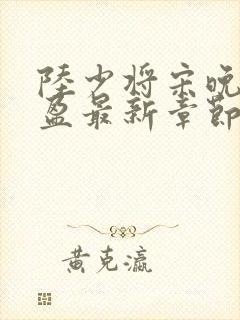 陸少将宋晚
盈最新章節
黃克瀛